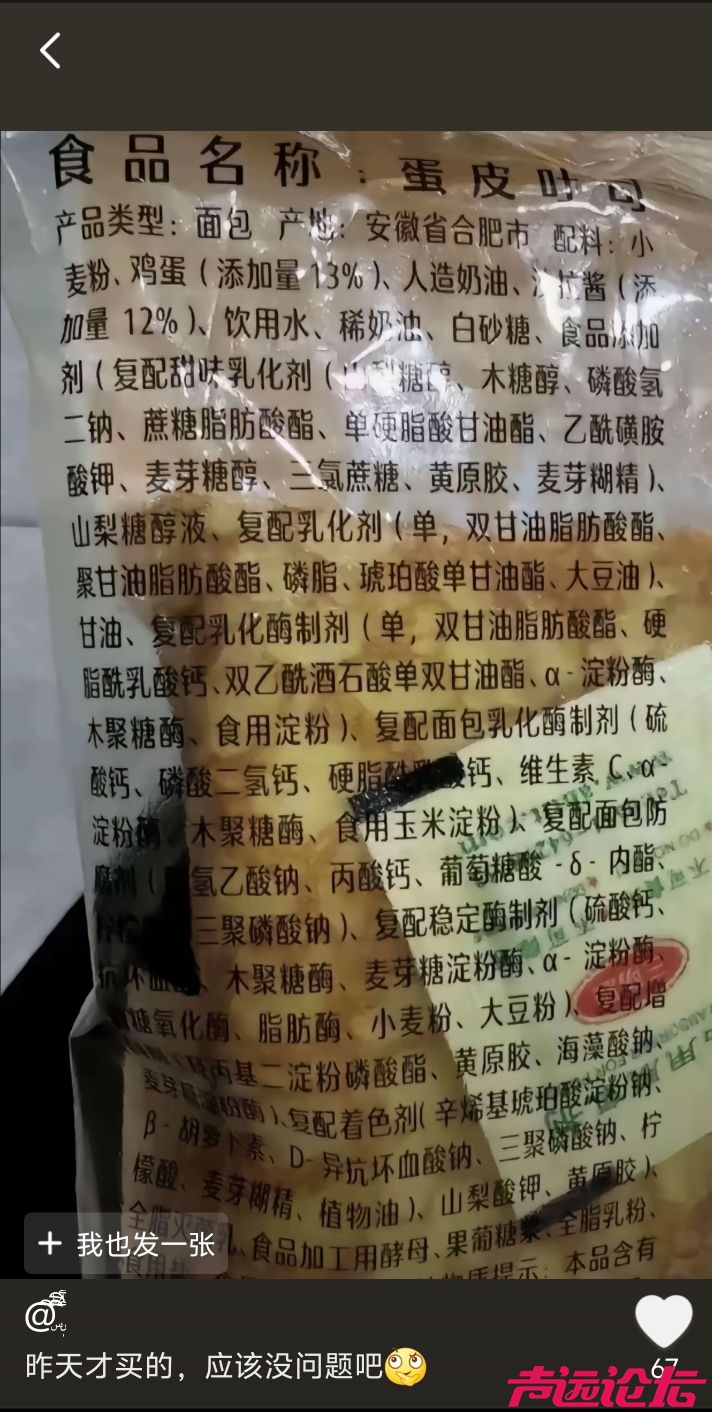 食品名称：蛋皮吐司
产品类型：面包 产地：安徽省合肥市 配料：小
麦粉、鸡蛋（添加量13%）、人造奶油、沙拉酱（添
加量 12%）、饮用水、稀奶油、白砂糖、食品添加
剂（复配甜味乳化剂（山梨糖醇、木糖醇、磷酸氢
二钠、蔗糖脂肪酸酯、单硬脂酸甘油酯、乙酰磺胺
酸钾、麦芽糖醇、三氯蔗糖、黄原胶、麦芽糊精）、
山梨糖醇液、复配乳化剂（单，双甘油脂肪酸酯、
聚甘油脂肪酸酯、磷脂、琥珀酸单甘油酯、大豆油）、
甘油、复配乳化酶制剂（单，双甘油脂肪酸酯、硬
脂酰乳酸钙、双乙酰酒石酸单双甘油酯、α-淀粉酶、
木聚糖酶、食用淀粉）、复配面包乳化酶制剂（硫
酸钙、磷酸二氢钙、硬脂酰乳酸钙、维生素 C、α-
淀粉酶、木聚糖酶、食用玉米淀粉）、复配面包防
腐剂（氢乙酸钠、丙酸钙、葡萄糖酸-δ-内酯、
三聚磷酸钠）、复配稳定酶制剂（硫酸钙、
抗坏血酸、木聚糖酶、麦芽糖淀粉酶、α-淀粉酶、
糖氧化酶、脂肪酶、小麦粉、大豆粉）、复配增
羟丙基二淀粉磷酸酯、黄原胶、海藻酸钠、
麦芽糖淀粉酶）、复配着色剂（辛烯基琥珀酸淀粉钠、
β-胡萝卜素、D-异抗坏血酸钠、三聚磷酸钠、柠
檬酸、麦芽糊精、植物油）、山梨酸钾、黄原胶）、
全脂灭菌乳、食品加工用酵母、果葡糖浆、全脂乳粉、
食用盐 质提示：本品含有
+ 我也发一张
@
昨天才买的，应该没问题吧
67
声远论坛